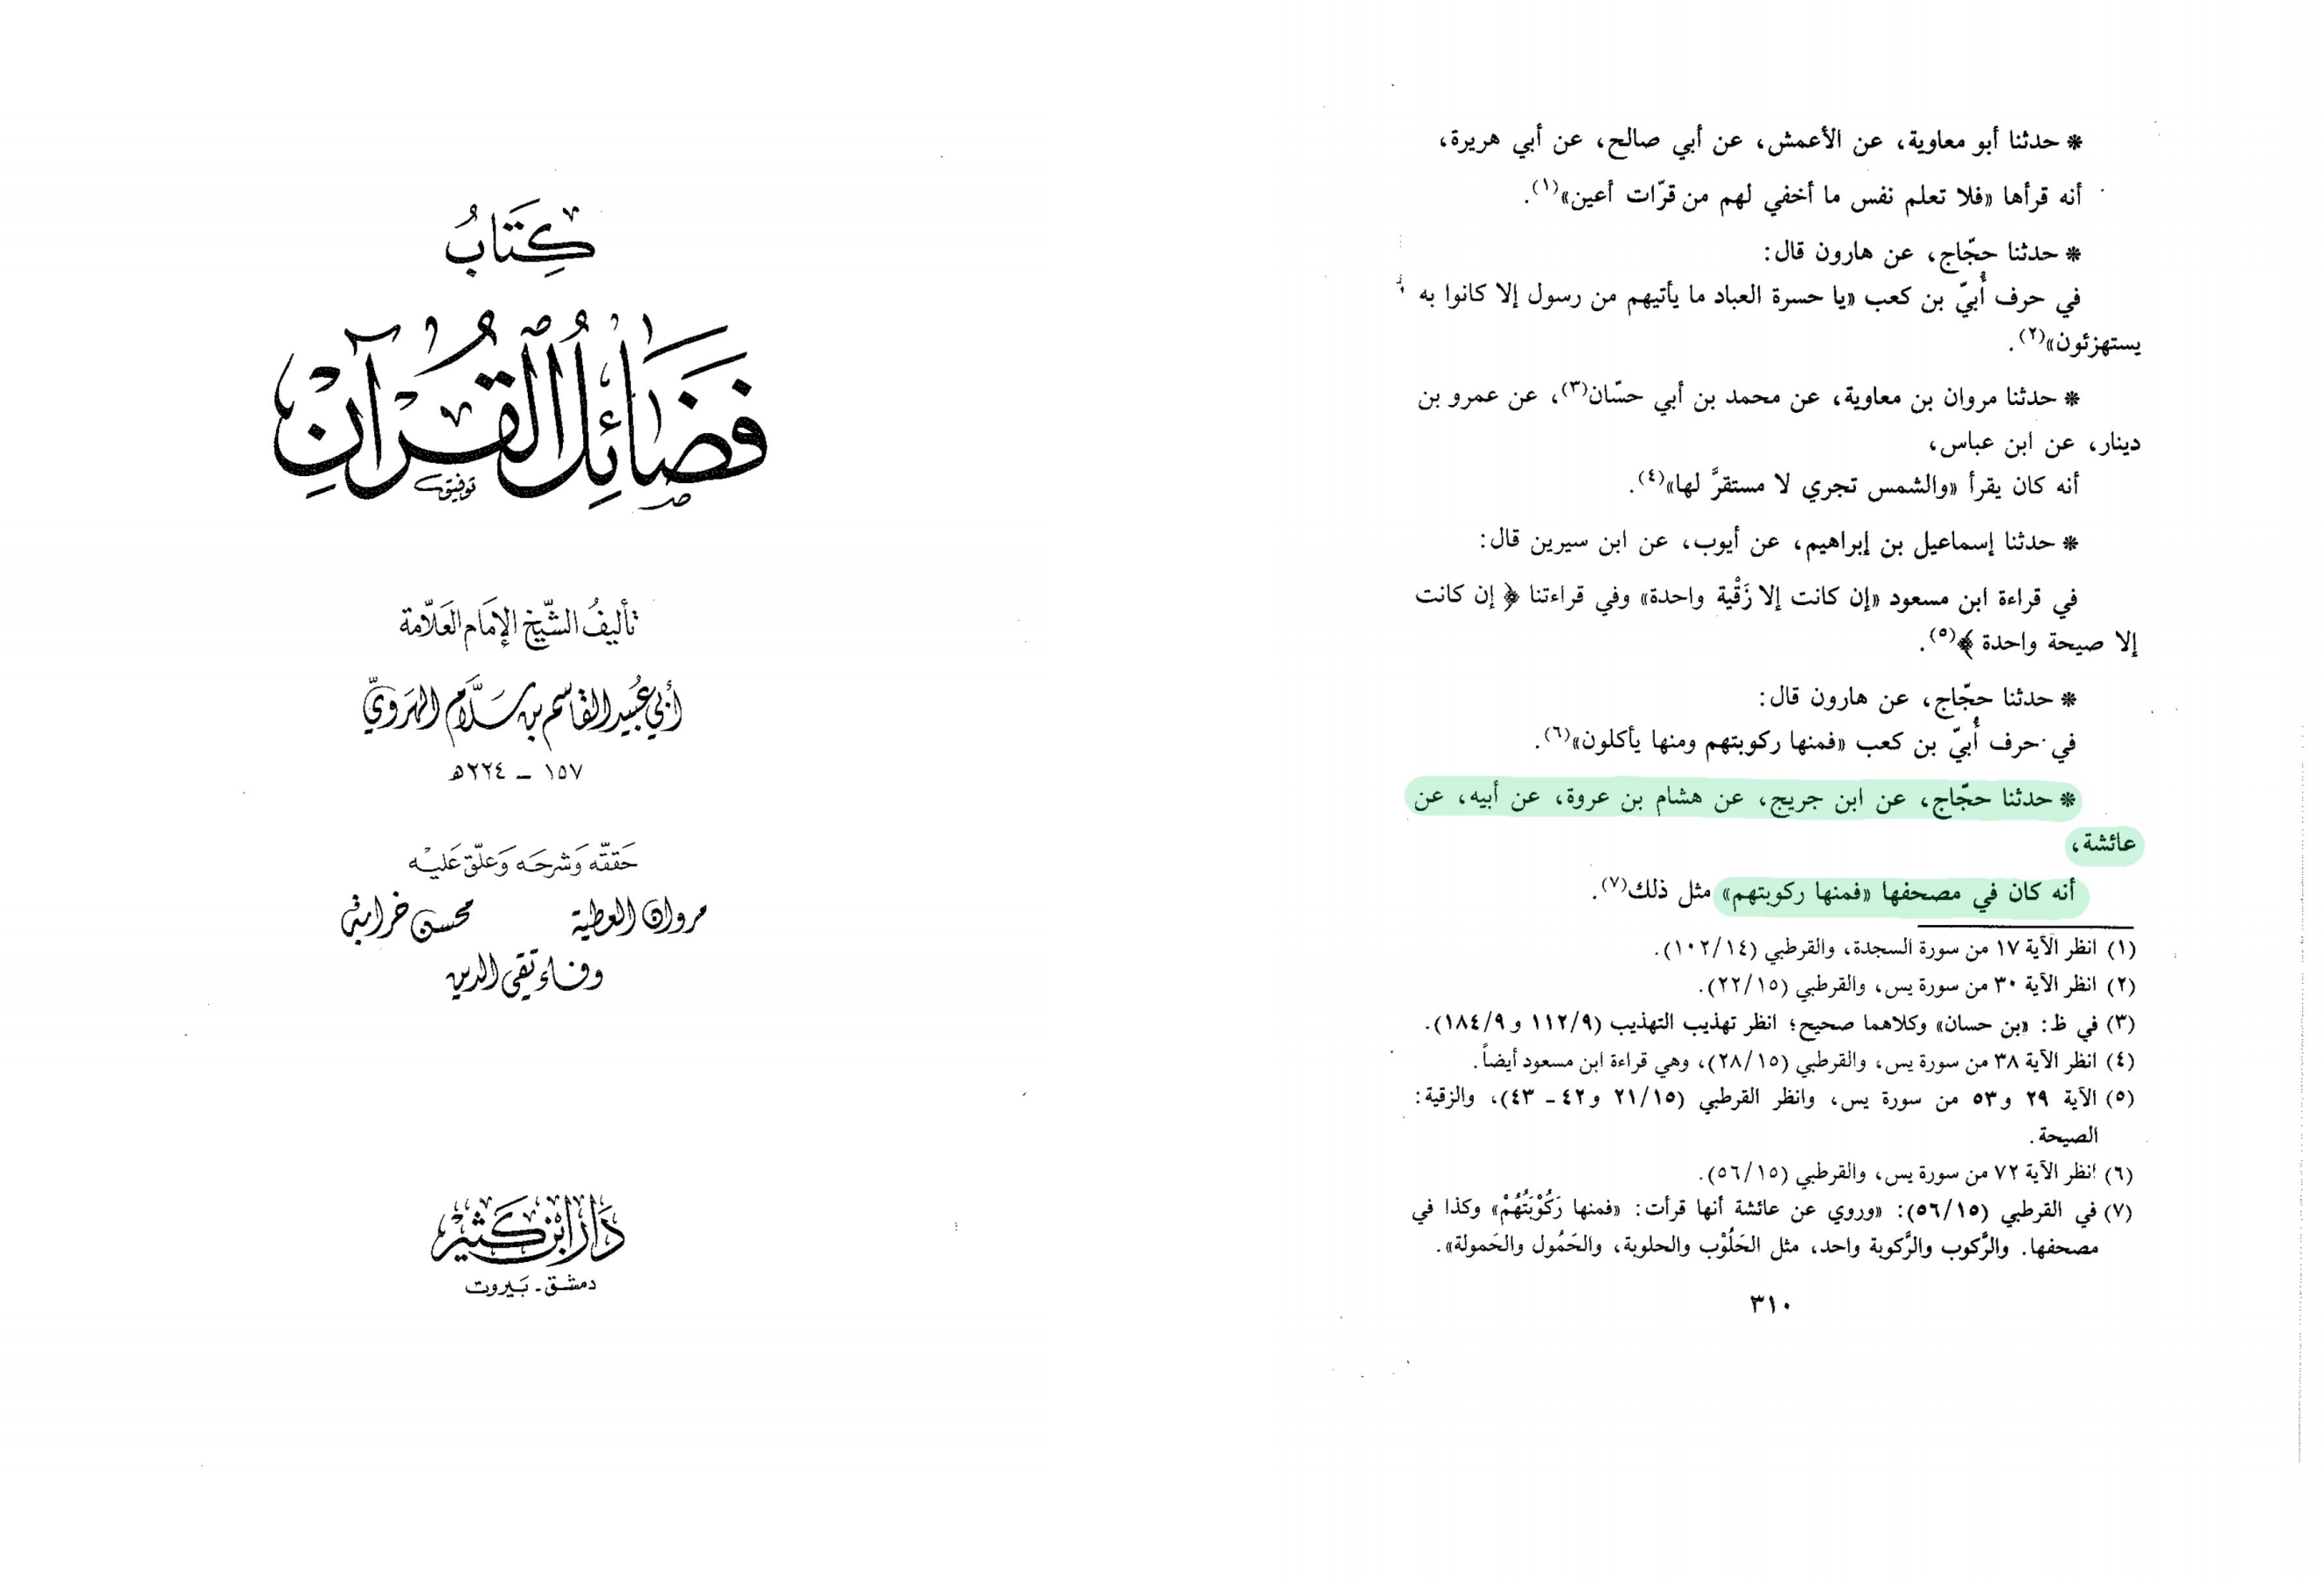 كِتَابُ
فَضَائِلُ القُرآنِ
توفيق
تأليفُ الشّيخ الإمَام العَلاّمة
أبي عُبيد القَاسم بن سَلاَّم الهَرَويّ
١٥٧ ــ ٢٢٤هـ
حَققّه وَشرحَه وَعلّق عَليْه
مروان العطية محسن خرابة
وفاء تقي الدين
دَار ابْن كَثيْر
دمشق ـ بَيروت
* حدثنا أبو معاوية، عن الأعمش، عن أبي صالح، عن أبي هريرة،
أنه قرأها «فلا تعلم نفس ما أخفي لهم من قرّات أعين»(١).
* حدثنا حجّاج، عن هارون قال:
في حرف أُبيّ بن كعب «يا حسرة العباد ما يأتيهم من رسول إلا كانوا به
يستهزئون»(٢).
* حدثنا مروان بن معاوية، عن محمد بن أبي حسّان(٣)، عن عمرو بن
دينار، عن ابن عباس،
أنه كان يقرأ «والشمس تجري لا مستقرَّ لها»(٤).
* حدثنا إسماعيل بن إبراهيم، عن أيوب، عن ابن سيرين قال:
في قراءة ابن مسعود «إن كانت إلا زَقْية واحدة» وفي قراءتنا ﴿إن كانت
إلا صيحة واحدة﴾(٥).
* حدثنا حجّاج، عن هارون قال:
في حرف أُبيّ بن كعب «فمنها ركوبتهم ومنها يأكلون»(٦).
* حدثنا حجّاج، عن ابن جريج، عن هشام بن عروة، عن أبيه، عن
عائشة،
أنه كان في مصحفها «فمنها ركوبتهم» مثل ذلك(٧).
(١) انظر الآية ١٧ من سورة السجدة، والقرطبي (١٠٢/١٤).
(٢) انظر الآية ٣٠ من سورة يس، والقرطبي (٢٢/١٥).
(٣) في ظ: «بن حسان» وكلاهما صحيح؛ انظر تهذيب التهذيب (١١٢/٩ و ١٨٤/٩).
(٤) انظر الآية ٣٨ من سورة يس، والقرطبي (٢٨/١٥)، وهي قراءة ابن مسعود أيضاً.
(٥) الآية ٢٩ و٥٣ من سورة يس، وانظر القرطبي (٢١/١٥ و٤٢ ـ ٤٣)، والزقية:
الصيحة.
(٦) انظر الآية ٧٢ من سورة يس، والقرطبي (٥٦/١٥).
(٧) في القرطبي (٥٦/١٥): «وروي عن عائشة أنها قرأت: «فمنها رَكُوْبَتُهُمْ» وكذا في
مصحفها. والرَّكوب والرَّكوبة واحد، مثل الحَلُوْب والحلوبة، والحَمُول والحَمولة».
٣١٠